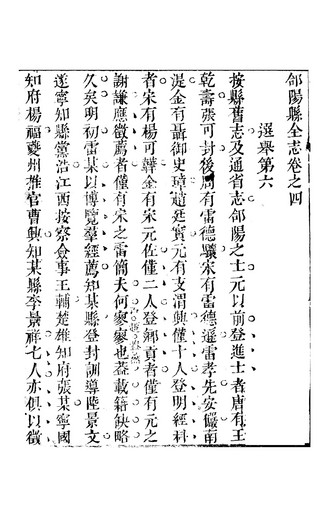 郃陽縣全志卷之四
選舉第六
按縣舊志及通省志郃陽之士元以前登進士者唐有王
乾壽張可封後周有雷德驤宋有雷德遜雷孝先安儼南
湜金有聶御史璋趙廷寶元有支渭興僅十人登明經科
者宋有楊可韡金有宋元佐僅二人登鄉貢者僅有元之
謝謙應徵薦者僅有宋之雷簡夫何寥寥也蓋載籍缺略
久矣明初雷某以博覽羣經薦知某縣登封訓導陸景文
遂寧知縣黨浩江西按察僉事王輔楚雄知府張某寧國
知府楊福夔州推官曹興知某縣李景祥七人亦俱以徵